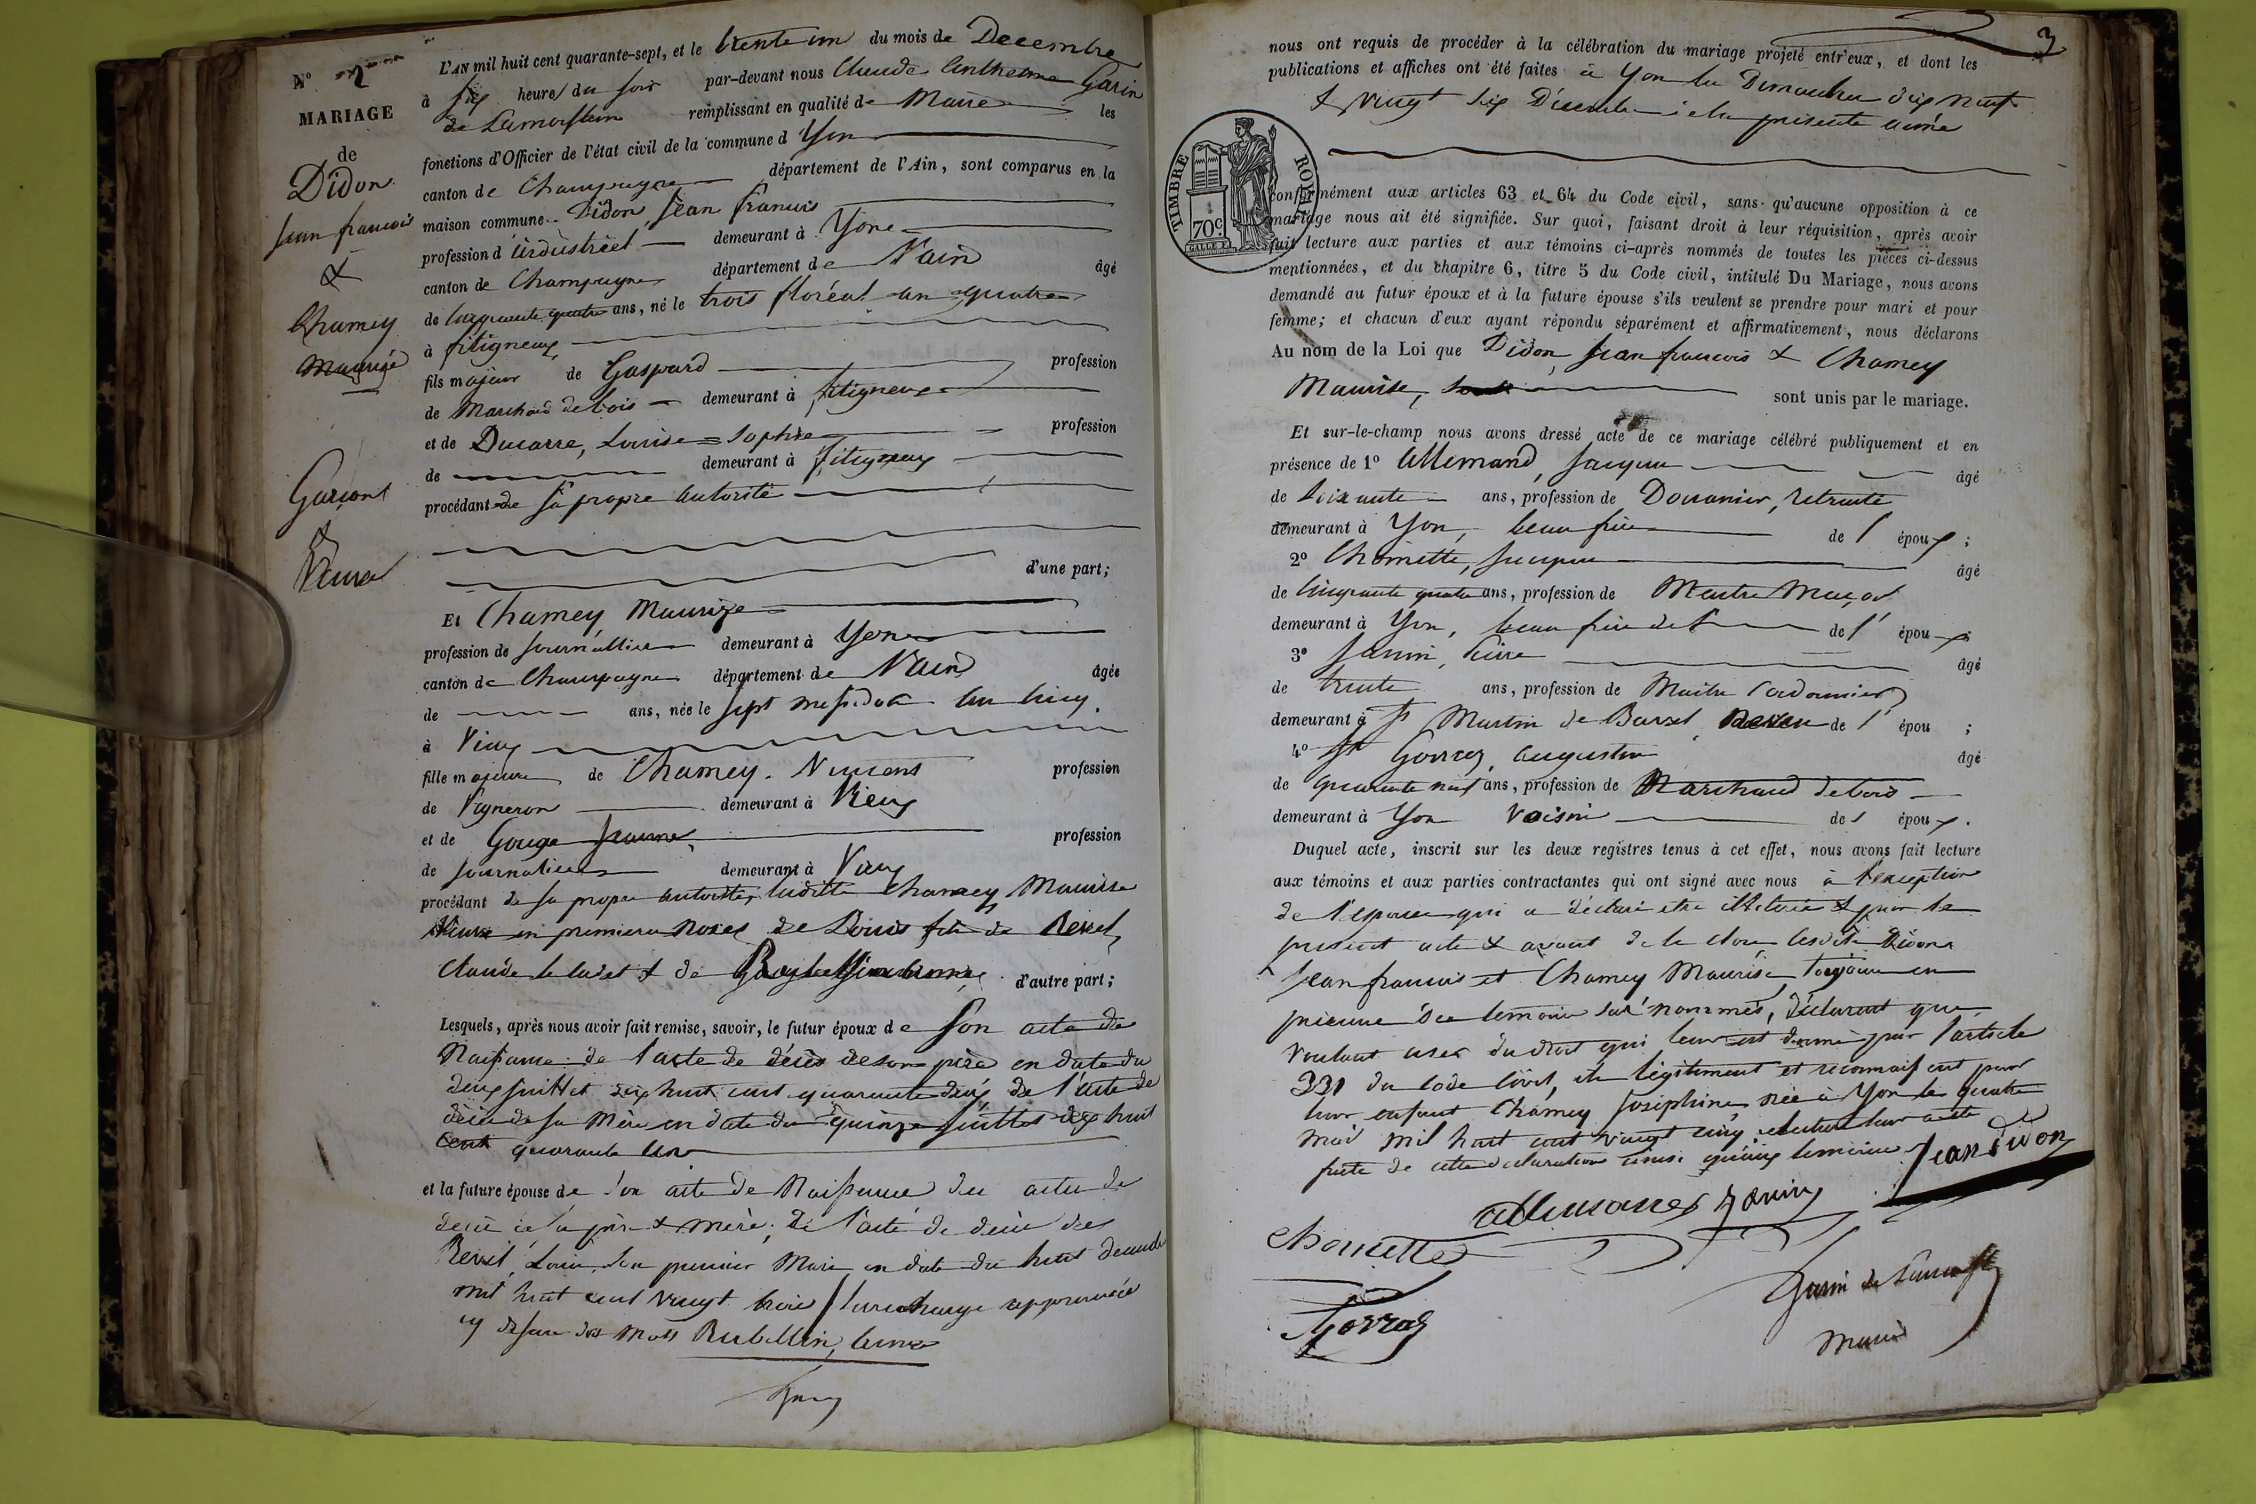 N° 2
MARIAGE
de
Didon
Jean francois
&
Chamey
Maurize
Garçon
&
Veuve
L'AN mil huit cent quarante-sept, et le trente un du mois de Decembre
à Six heures du soir par-devant nous Claude Anthelme Garin
de Lamorflan remplissant en qualité de Maire les
fonctions d'Officier de l'état civil de la commune d Yon
canton de Champagne département de l'Ain, sont comparus en la
maison commune Didon, Jean francois
profession d'industriel demeurant à Yon
canton de Champagne département de l'ain âgé
de Cinquante quatre ans, né le trois floréal an quatre
à fitigneux
fils majeur de Gaspard profession
de Marchand de bois demeurant à fitigneux
et de Ducarre, Louise Sophie profession
de demeurant à fitigneux
procédant de sa propre autorité
d'une part;
Et Chamey Maurize
profession de Journalliere demeurant à Yon
canton de Champagne département de l'ain âgée
de ans, née le sept messidor an cinq
à Vieu
fille majeure de Chamey. Vincent profession
de Vigneron demeurant à Vieu
et de Gouge Jeanne, profession
de Journaliere demeurant à Vieu
procédant de sa propre autorité, ladite Chamey Maurise
Veuve en premieres noces de Louis fils de Revel,
Claude le cadet & de d'autre part;
Lesquels, après nous avoir fait remise, savoir, le futur époux de son acte de
Naissance de l'acte de décès de son père en date du
deux juillet dix huit cent quarante deux de l'acte de
décès de sa Mère en date du quinze juillet dix huit
cent quarante un
et la future épouse de son acte de Naissance des actes de
décès de sa père & mère, de l'acte de décès de
Revel, Louis, son premier Mari en date du huit decembre
mil huit cent vingt trois / surcharge approuvée
cy dessus des mots Rubellin,
nous ont requis de procéder à la célébration du mariage projeté entr'eux, et dont les
publications et affiches ont été faites à Yon les Dimanches dix neuf
& vingt six Décembre de la présente année
3
TIMBRE ROYAL
70c.
conformément aux articles 63 et 64 du Code civil, sans qu'aucune opposition à ce
mariage nous ait été signifiée. Sur quoi, faisant droit à leur réquisition, après avoir
fait lecture aux parties et aux témoins ci-après nommés de toutes les pièces ci-dessus
mentionnées, et du chapitre 6, titre 5 du Code civil, intitulé Du Mariage, nous avons
demandé au futur époux et à la future épouse s'ils veulent se prendre pour mari et pour
femme; et chacun d'eux ayant répondu séparément et affirmativement, nous déclarons
Au nom de la Loi que Didon, Jean francois & Chamey
Maurise, sont unis par le mariage.
Et sur-le-champ nous avons dressé acte de ce mariage célébré publiquement et en
présence de 1° Allemand, Jacques âgé
de soixante ans, profession de Douanier, retraité
demeurant à Yon, beau frère de l' époux;
2° Chomette, Jacques âgé
de Cinquante quatre ans, profession de Maitre Maçon
demeurant à Yon, beau frère de l' époux;
3° Janin, Pierre âgé
de trente ans, profession de Maitre Cordonnier
demeurant à St Martin de Bavel, neveu de l' épou ;
4° Gorraz, augustin âgé
de quarante neuf ans, profession de Marchand de bois
demeurant à Yon voisin de l époux.
Duquel acte, inscrit sur les deux registres tenus à cet effet, nous avons fait lecture
aux témoins et aux parties contractantes qui ont signé avec nous à l'exception
de l'epouse qui a déclaré etre illétrée & par le
present acte & avant de le clore lesdits Didon
Jean francois et Chamey Maurise, toujours en
présence des temoins sus nommés, déclarent que
voulant user du droit qui leur est donné par l'article
331 du code civil, ils légitiment et reconnaissent pour
leur enfant Chamey Joséphine née à Yon le quatre
mai mil huit cent vingt cinq leur acte
de cette declaration ainsi témoins
Jean Didon
Allemand Janin
Chomette
Gorraz
Garin de Lamorfl
Maire